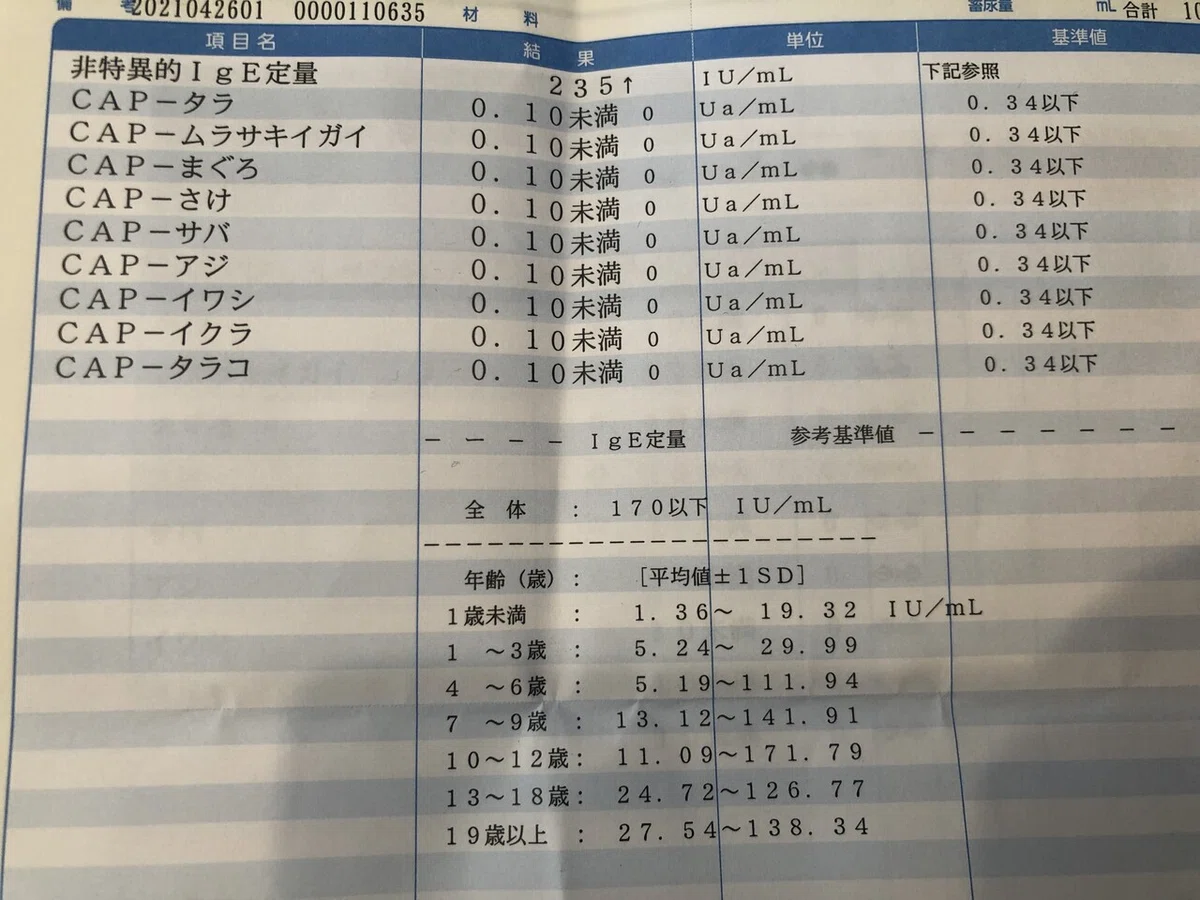 備 考2021042601 0000110635 材 料 蓄尿量 mL 合計
項目名 結 果 単位 基準値
非特異的IgE定量 235↑ IU/mL 下記参照
CAP-タラ 0.10未満 0 Ua/mL 0.34以下
CAP-ムラサキイガイ 0.10未満 0 Ua/mL 0.34以下
CAP-まぐろ 0.10未満 0 Ua/mL 0.34以下
CAP-さけ 0.10未満 0 Ua/mL 0.34以下
CAP-サバ 0.10未満 0 Ua/mL 0.34以下
CAP-アジ 0.10未満 0 Ua/mL 0.34以下
CAP-イワシ 0.10未満 0 Ua/mL 0.34以下
CAP-イクラ 0.10未満 0 Ua/mL 0.34以下
CAP-タラコ 0.10未満 0 Ua/mL 0.34以下
- - - - IgE定量 参考基準値 - - - - - - -
全 体 : 170以下 IU/mL
----------------------
年齢(歳): [平均値±1SD]
1歳未満 : 1.36~ 19.32 IU/mL
1 ~3歳 : 5.24~ 29.99
4 ~6歳 : 5.19~111.94
7 ~9歳 : 13.12~141.91
10~12歳: 11.09~171.79
13~18歳: 24.72~126.77
19歳以上 : 27.54~138.34